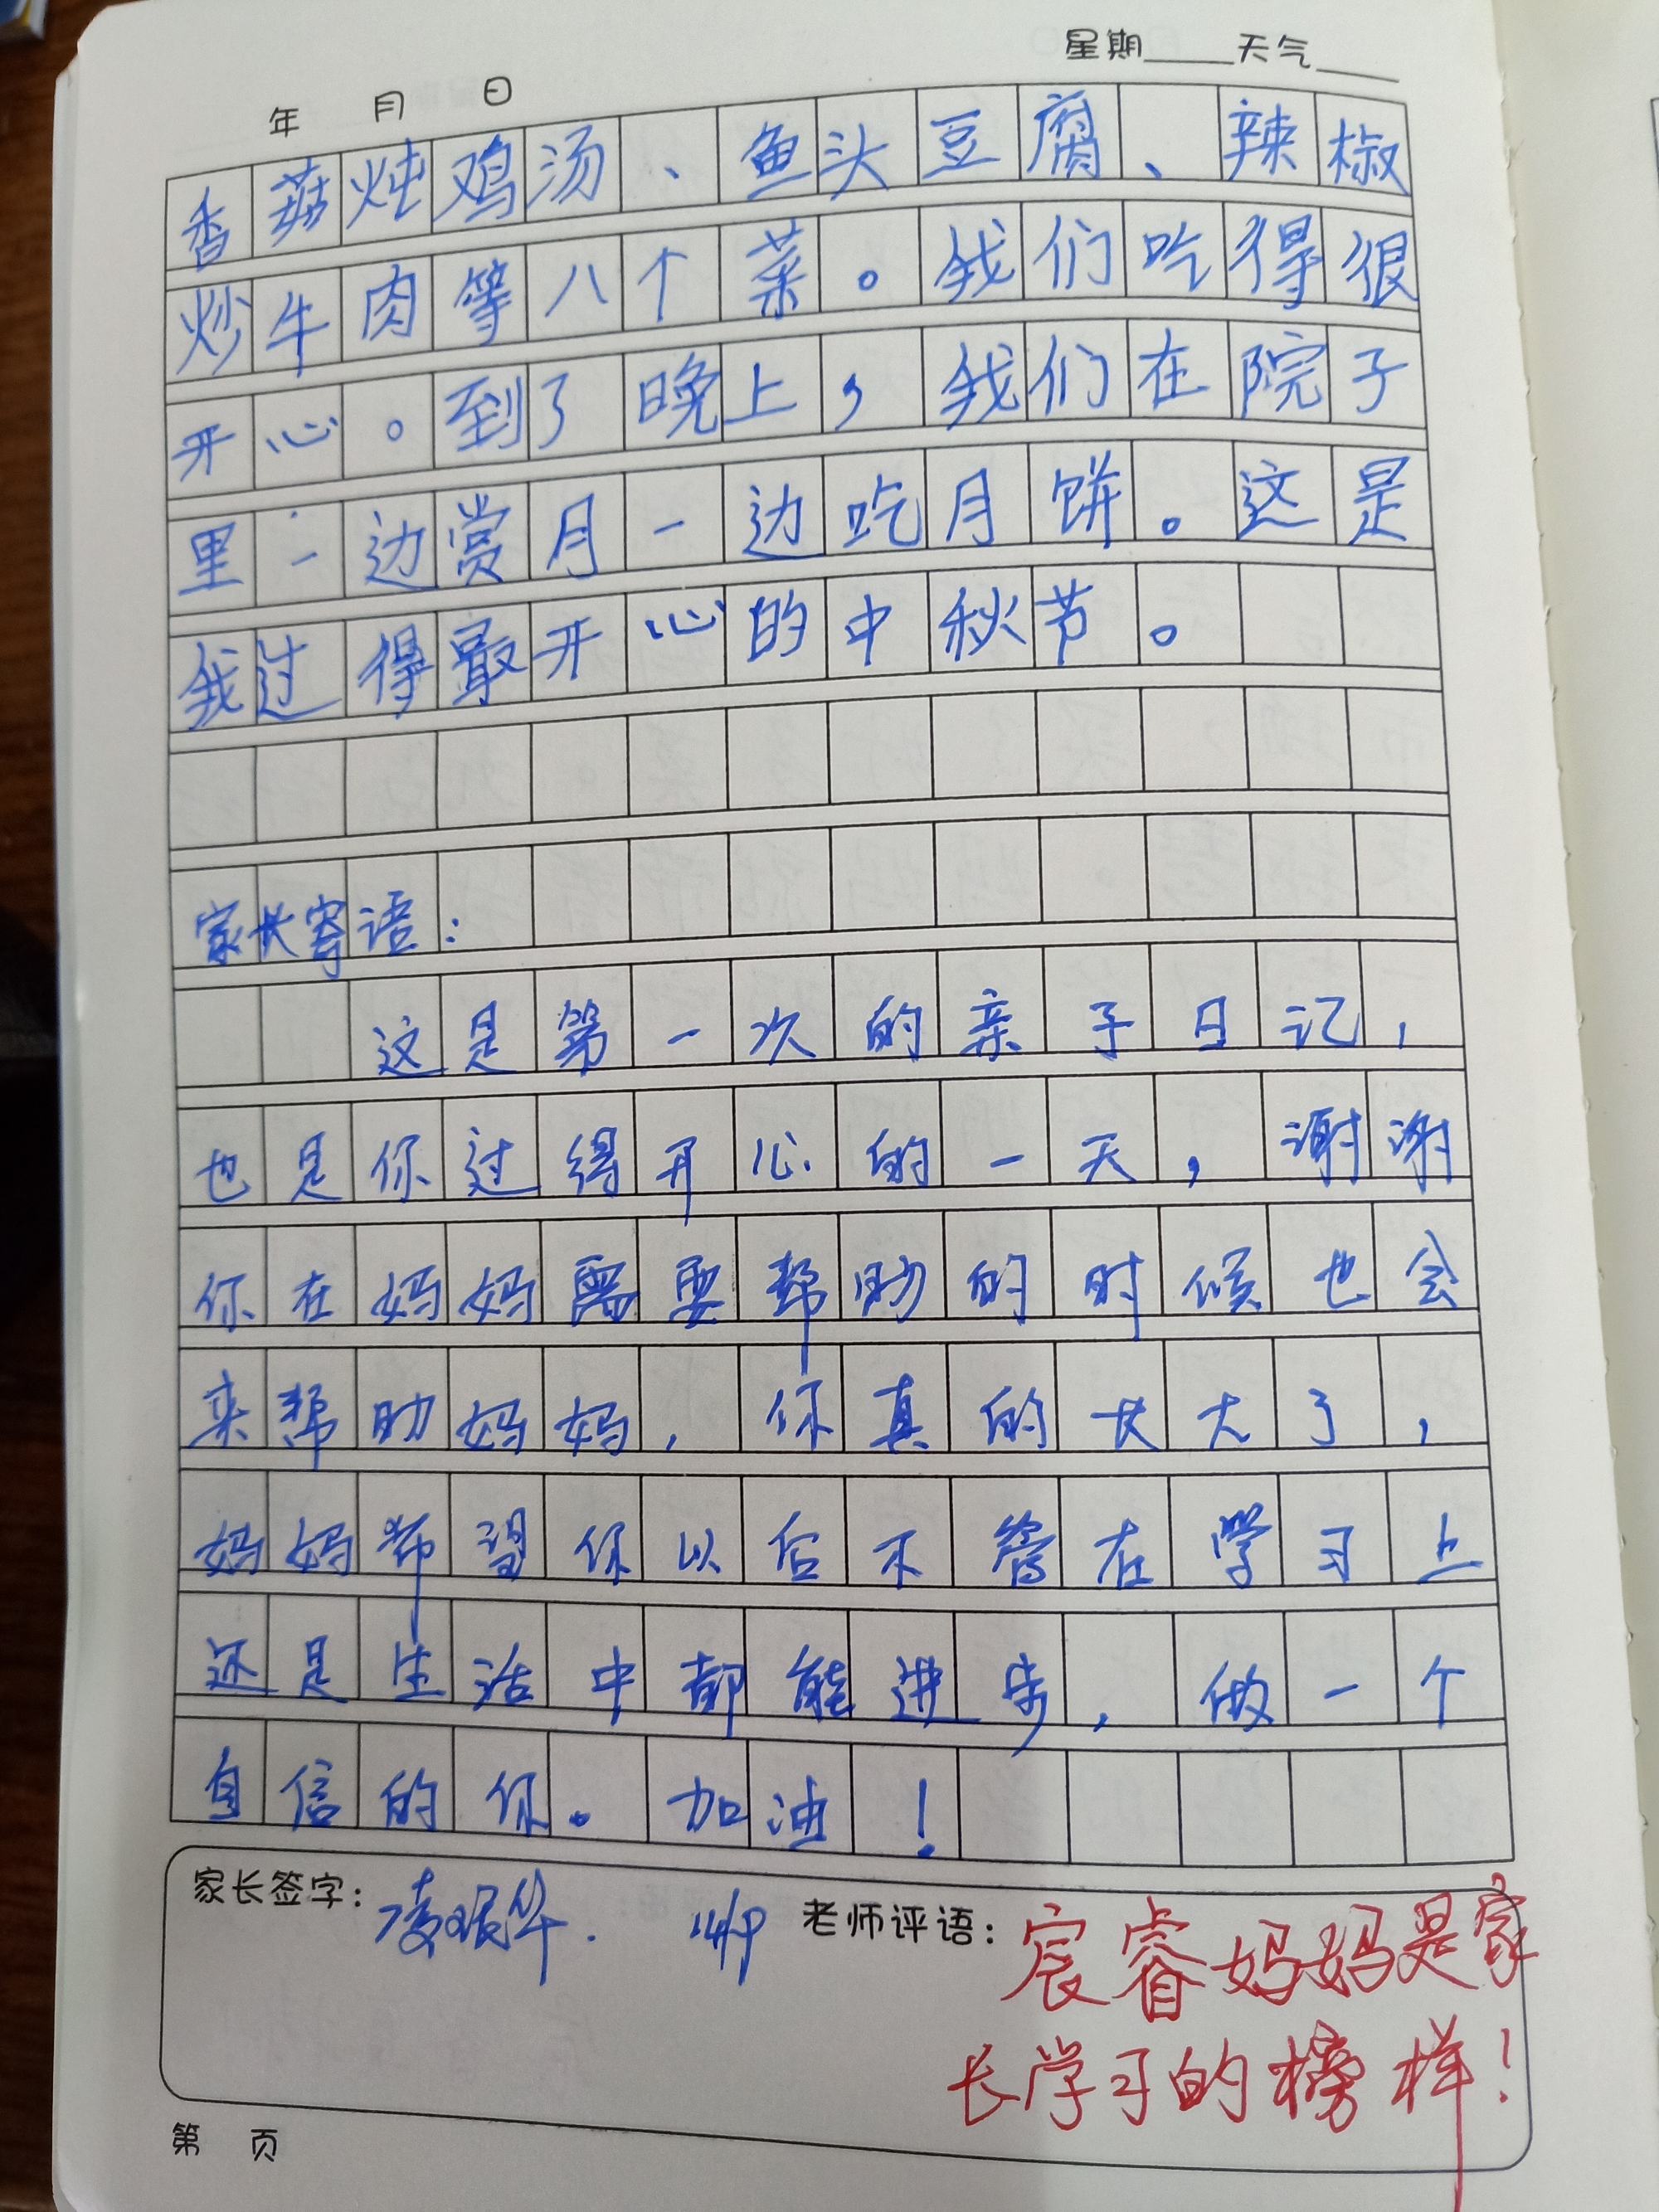 星期____天气____
年 月 日
香菇炖鸡汤、鱼头豆腐、辣椒
炒牛肉等八个菜。我们吃得很
开心。到了晚上，我们在院子
里一边赏月一边吃月饼。这是
我过得最开心的中秋节。
家长寄语：
这是第一次的亲子日记，
也是你过得开心的一天，谢谢
你在妈妈需要帮助的时候也会
来帮助妈妈，你真的长大了，
妈妈希望你以后不管在学习上
还是生活中都能进步，做一个
自信的你。加油！
家长签字：
老师评语：宸睿妈妈是家
长学习的榜样！
第 页